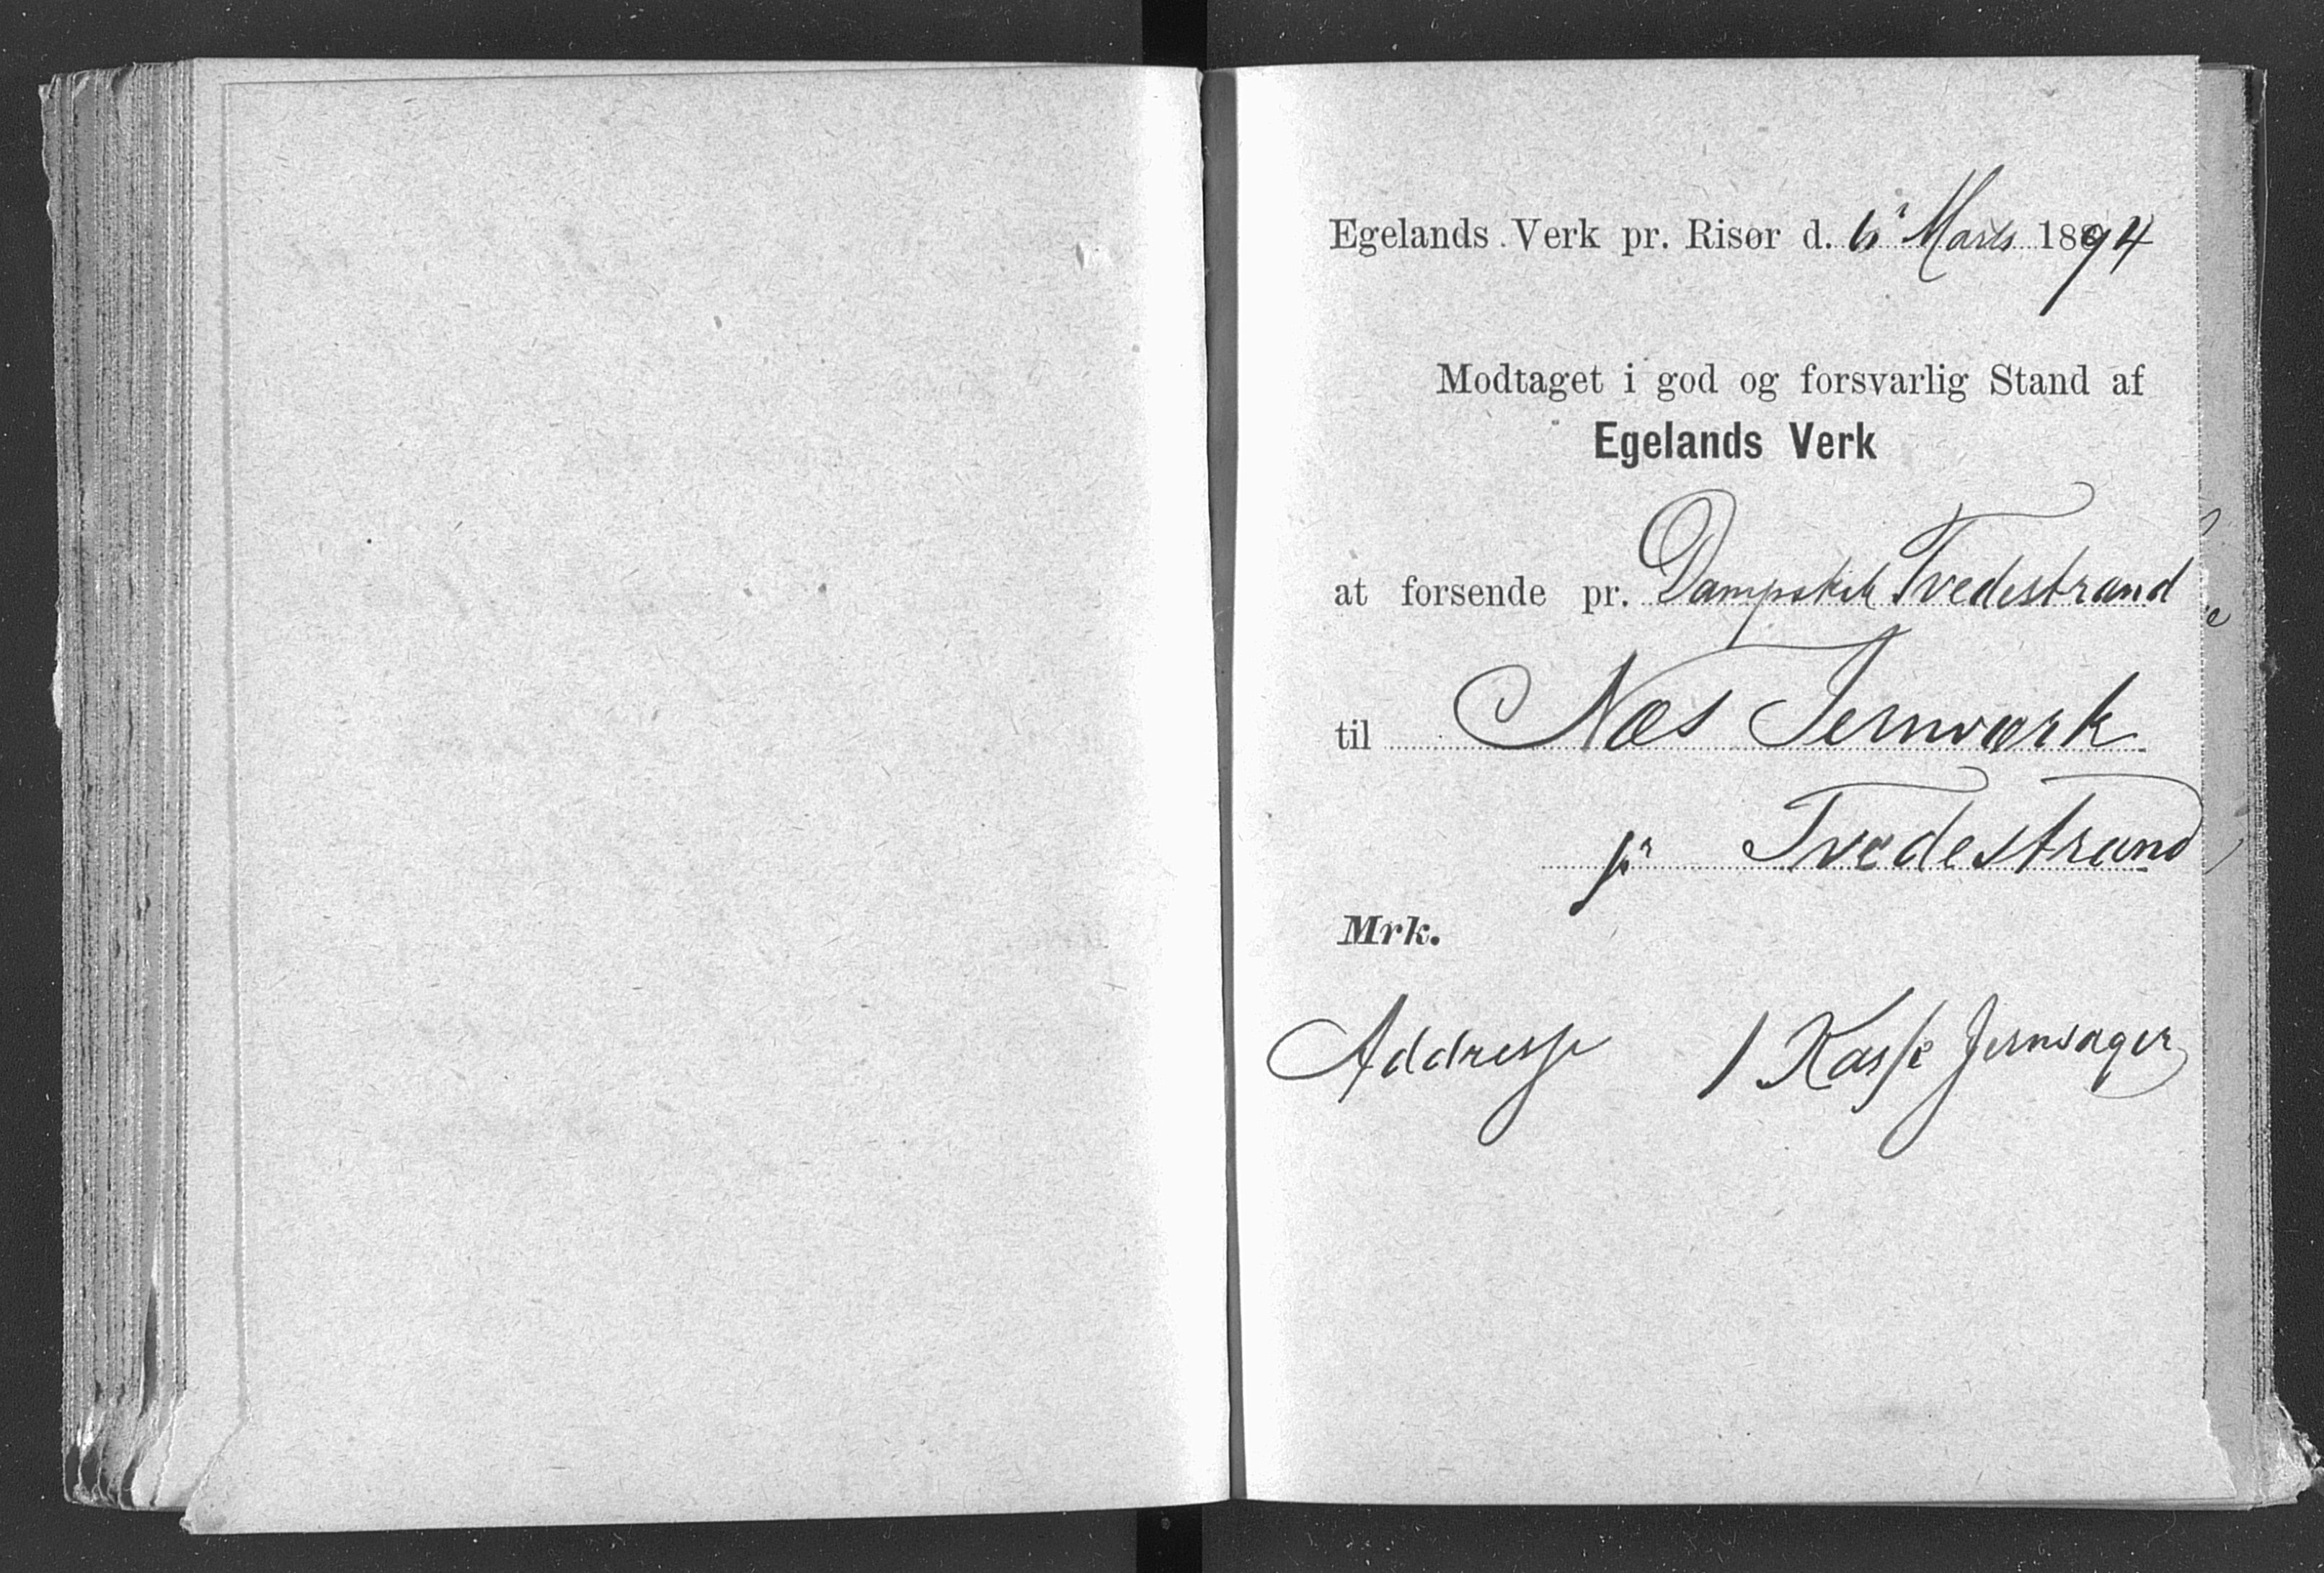 Egelands Verk pr. Risør d. 6' Marts 1894
Modtaget i god og forsvarlig Stand af
Egelands Verk
at forsende pr. Dampskib Tvedestrand
til Næs Jernværk
pr Tvedestrand
Mrk.
Addresse 1 Kasse Jernsager